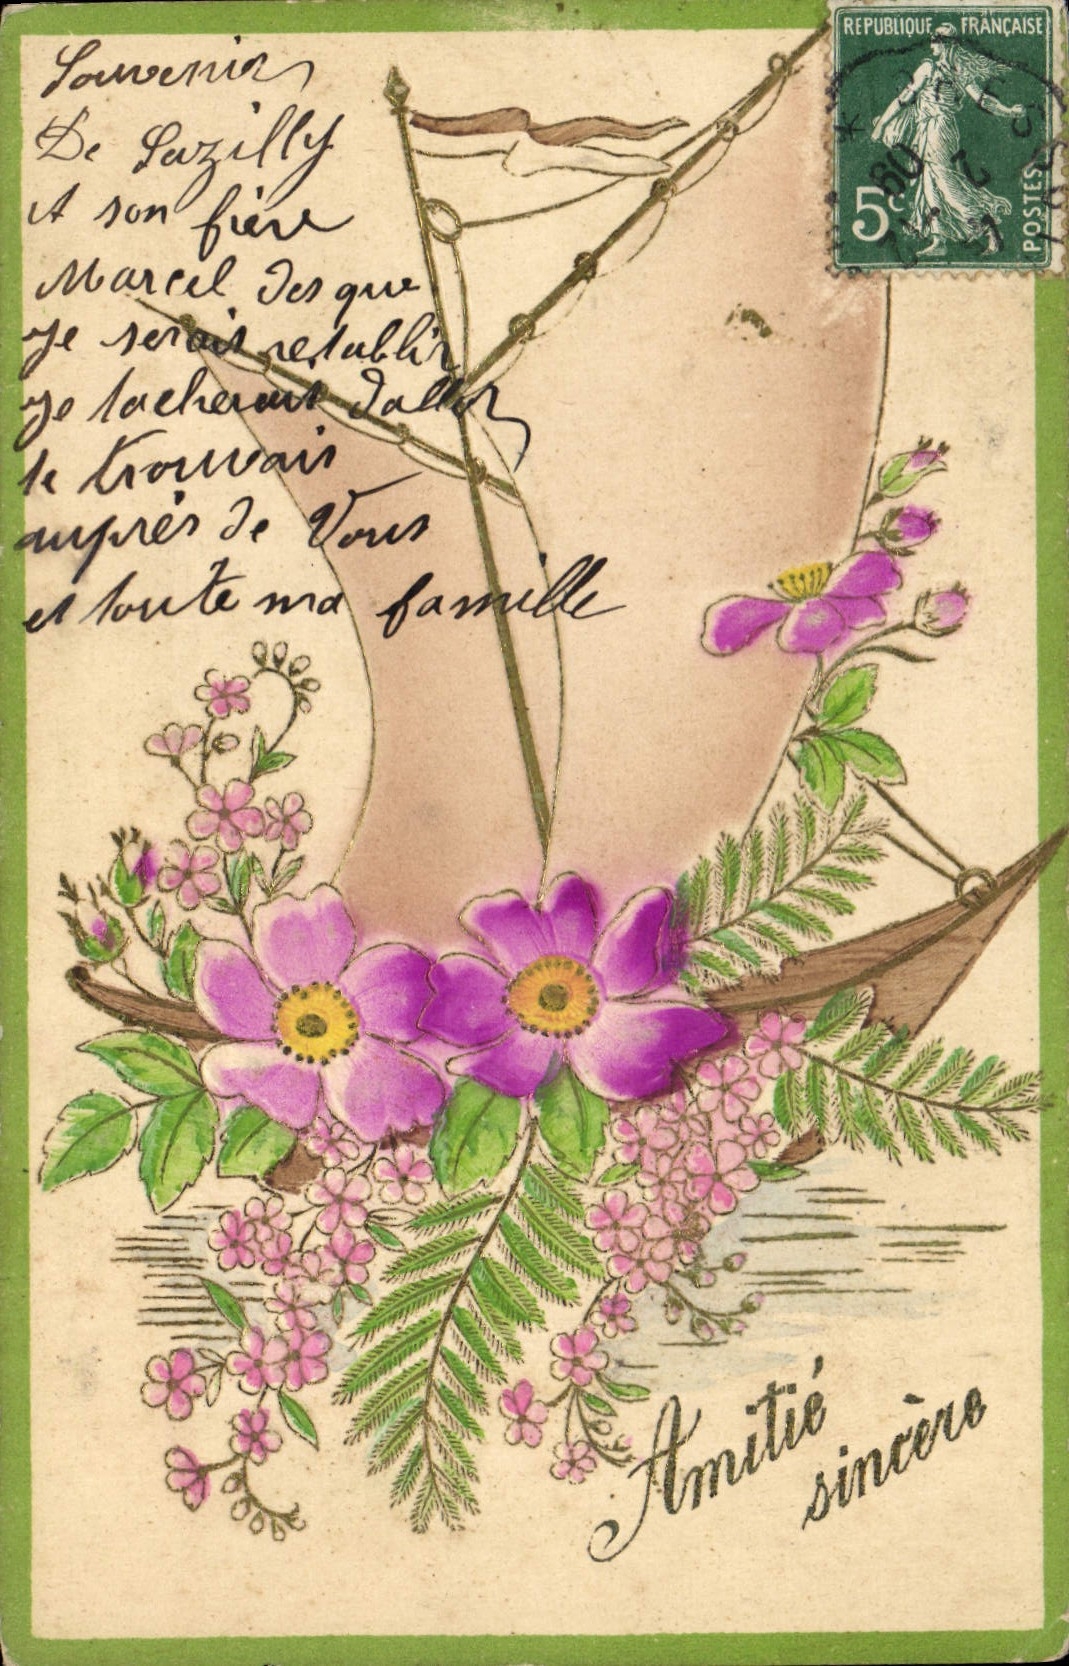 Souvenir
De Lazilly
et son frère
Marcel des que
je serais retablir
je tacherait daller
te trouvais
auprès de Vous
et toute ma famille
REPUBLIQUE FRANÇAISE
5c
POSTES
Amitié
sincère